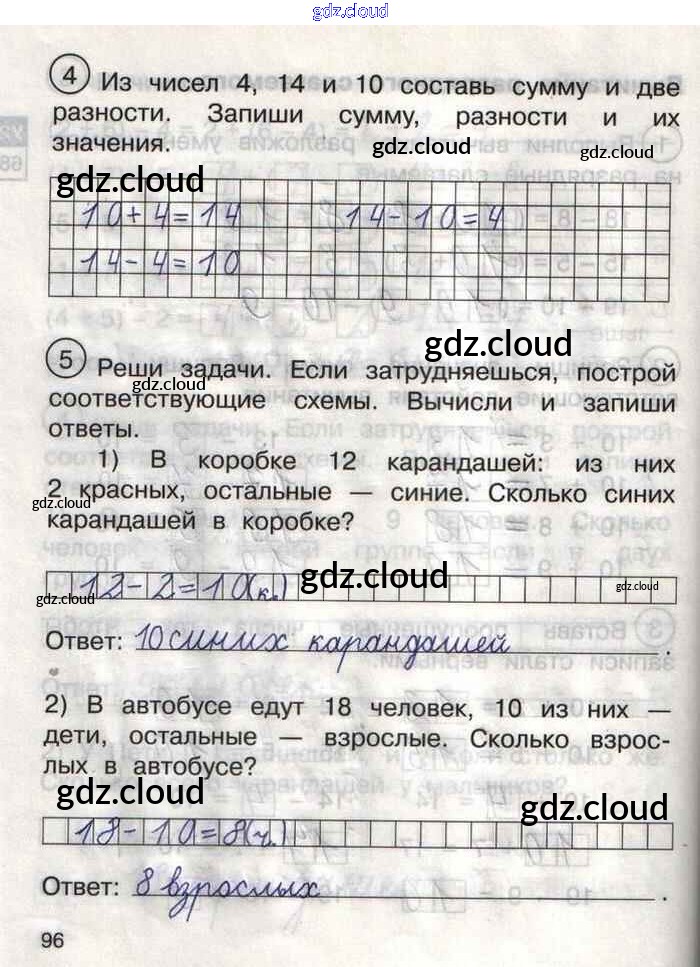 gdz.cloud
4 Из чисел 4, 14 и 10 составь сумму и две
разности. Запиши сумму, разности и их
значения.
gdz.cloud
gdz.cloud
gdz.cloud
10+4=14 14-10=4
14-4=10
gdz.cloud
5 Реши задачи. Если затрудняешься, построй
gdz.cloud
соответствующие схемы. Вычисли и запиши
ответы.
1) В коробке 12 карандашей: из них
2 красных, остальные — синие. Сколько синих
gdz.cloud
карандашей в коробке?
12-2=10(к.) gdz.cloud gdz.cloud
gdz.cloud
Ответ: 10 синих карандашей.
2) В автобусе едут 18 человек, 10 из них —
дети, остальные — взрослые. Сколько взрос-
лых в автобусе?
gdz.cloud
gdz.cloud
18-10=8(ч.)
Ответ: 8 взрослых.
96